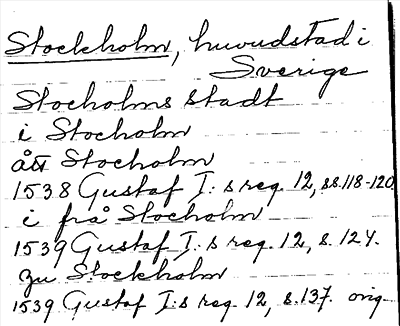 Stockholm, huvudstad i
Sverige
Stocholms stadt
i Stocholm
ått Stocholm
1538 Gustaf I:s reg. 12, ss.118-120
i frå Stocholm
1539 Gustaf I:s reg. 12, s. 124.
zu Stockholm
1539 Gustaf I:s reg. 12, s.137. orig-